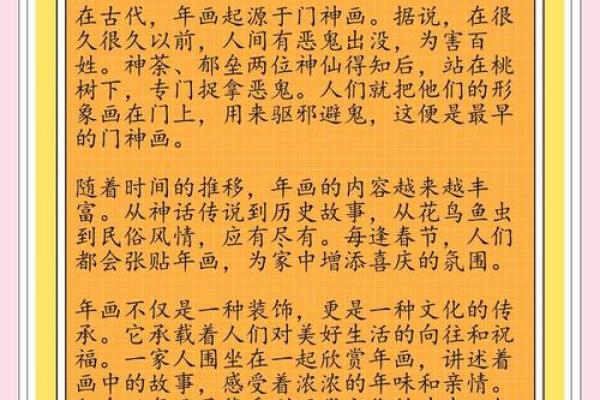 在古代，年画起源于门神画。据说，在很
久很久以前，人间有恶鬼出没，为害百
姓。神荼、郁垒两位神仙得知后，站在桃
树下，专门捉拿恶鬼。人们就把他们的形
象画在门上，用来驱邪避鬼，这便是最早
的门神画。
随着时间的推移，年画的内容越来越丰
富。从神话传说到历史故事，从花鸟鱼虫
到民俗风情，应有尽有。每逢春节，人们
都会张贴年画，为家中增添喜庆的氛围。
年画不仅是一种装饰，更是一种文化的传
承。它承载着人们对美好生活的向往和祝
福。一家人围坐在一起欣赏年画，讲述着
画中的故事，感受着浓浓的年味和亲情。